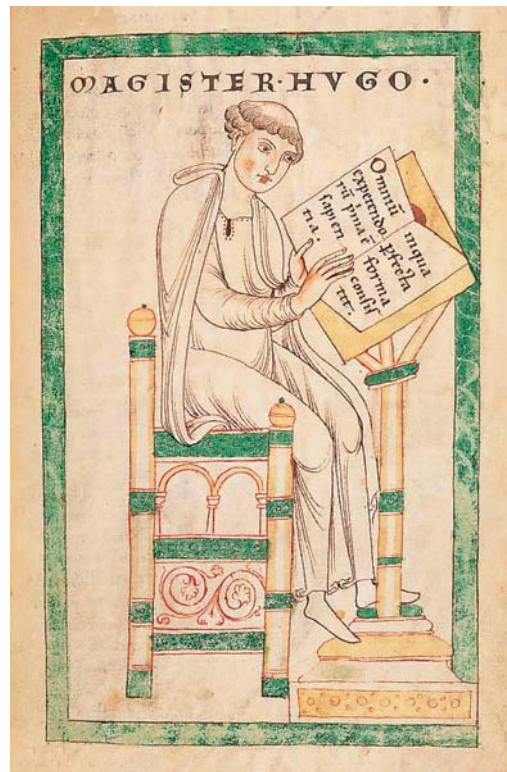 MAGISTER·HVGO·
Omniū
expetendo
rū p̄ma ē
sapien
tia.
inqua
p̄fecta
forma
consis
tit.